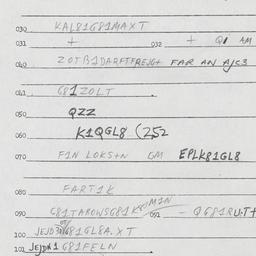 030 KAL81G81MAXT
031 + 032 + Q1 AM
040 ZOTB1DARFTFREJG+ FAR AN AJS3
041 G81ZOLT
050 QZZ
060 K1QGL8 (252
070 F1N LOKS+N GM EPLK81GL8
080 FART1K
090 G81TAROWSG81K M1N 091 - QG81RUT+
100 JEJD G81GL8A.XT
101 JEJDA1G81FELN